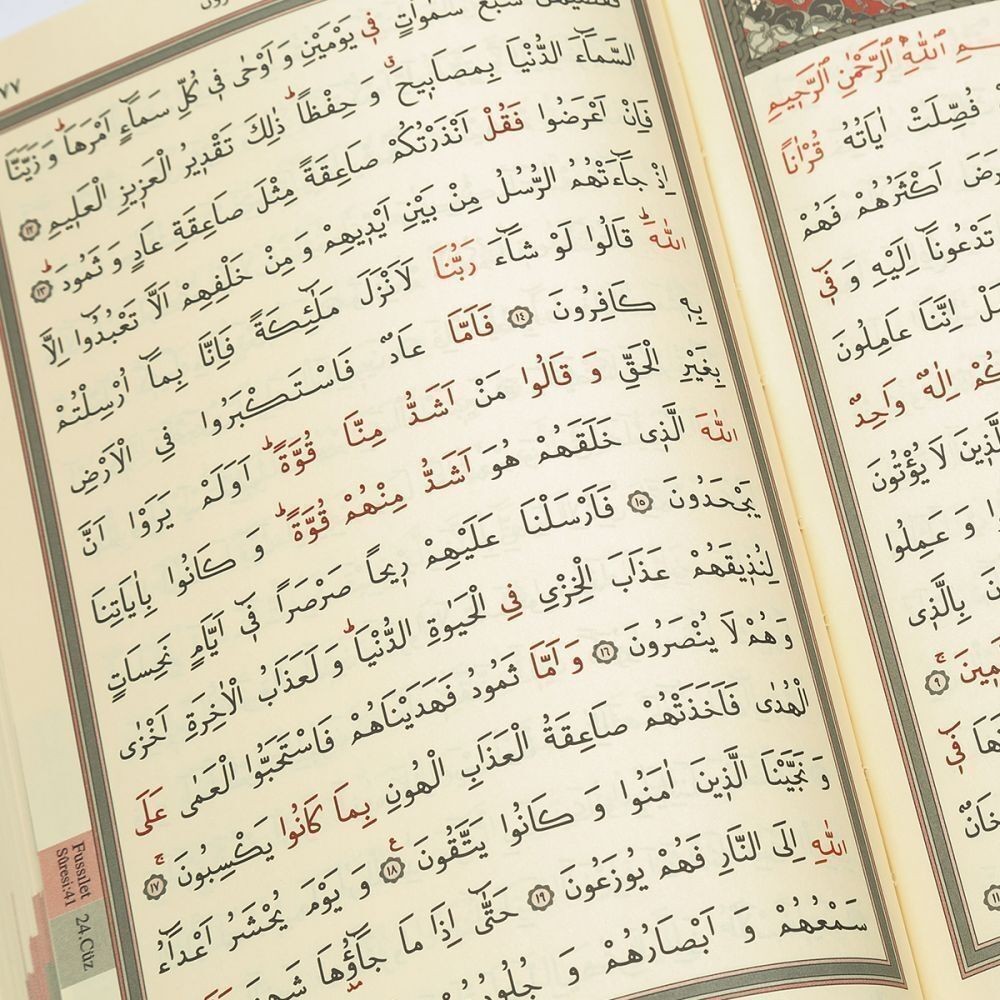 اللّٰهِ الرَّحْمٰنِ الرَّحٖيمِ
فُصِّلَتْ اٰيَاتُهُ قُرْاٰناً
اَكْثَرُهُمْ فَهُمْ
تَدْعُونَٓا اِلَيْهِ وَ فٖٓى
اِنَّنَا عَامِلُونَ
اِلٰهٌ وَاحِدٌ
لَا يُؤْتُونَ
وَ عَمِلُوا
بِالَّذٖى
٩
فٖٓى
١١
٧٧
سَبْعَ سَمٰوَاتٍ فٖى يَوْمَيْنِ وَ اَوْحٰى فٖى كُلِّ سَمَٓاءٍ اَمْرَهَاؕ وَ زَيَّنَّا
السَّمَٓاءَ الدُّنْيَا بِمَصَابٖيحَۗ وَ حِفْظاًؕ ذٰلِكَ تَقْدٖيرُ الْعَزٖيزِ الْعَلٖيمِ ١٢
فَاِنْ اَعْرَضُوا فَقُلْ اَنْذَرْتُكُمْ صَاعِقَةً مِثْلَ صَاعِقَةِ عَادٍ وَ ثَمُودَؕ ١٣
اِذْ جَٓاءَتْهُمُ الرُّسُلُ مِنْ بَيْنِ اَيْدٖيهِمْ وَ مِنْ خَلْفِهِمْ اَلَّا تَعْبُدُٓوا اِلَّا
اللّٰهَؕ قَالُوا لَوْ شَٓاءَ رَبُّنَا لَاَنْزَلَ مَلٰٓئِكَةً فَاِنَّا بِمَٓا اُرْسِلْتُمْ
بِهٖ كَافِرُونَ ١٤ فَاَمَّا عَادٌ فَاسْتَكْبَرُوا فِى الْاَرْضِ
بِغَيْرِ الْحَقِّ وَ قَالُوا مَنْ اَشَدُّ مِنَّا قُوَّةًؕ اَوَلَمْ يَرَوْا اَنَّ
اللّٰهَ الَّذٖى خَلَقَهُمْ هُوَ اَشَدُّ مِنْهُمْ قُوَّةًؕ وَ كَانُوا بِاٰيَاتِنَا
يَجْحَدُونَ ١٥ فَاَرْسَلْنَا عَلَيْهِمْ رٖيحاً صَرْصَراً فٖٓى اَيَّامٍ نَحِسَاتٍ
لِنُذٖيقَهُمْ عَذَابَ الْخِزْىِ فِى الْحَيٰوةِ الدُّنْيَاؕ وَ لَعَذَابُ الْاٰخِرَةِ اَخْزٰى
وَهُمْ لَا يُنْصَرُونَ ١٦ وَ اَمَّا ثَمُودُ فَهَدَيْنَاهُمْ فَاسْتَحَبُّوا الْعَمٰى عَلَى
الْهُدٰى فَاَخَذَتْهُمْ صَاعِقَةُ الْعَذَابِ الْهُونِ بِمَا كَانُوا يَكْسِبُونَۚ ١٧
وَ نَجَّيْنَا الَّذٖينَ اٰمَنُوا وَ كَانُوا يَتَّقُونَ ع ١٨ وَ يَوْمَ يُحْشَرُ اَعْدَٓاءُ
اللّٰهِ اِلَى النَّارِ فَهُمْ يُوزَعُونَ ١٩ حَتّٰٓى اِذَا مَا جَٓاؤُ۫هَا
سَمْعُهُمْ وَ اَبْصَارُهُمْ وَ
Fussılet
Sûresi:41
24.Cüz